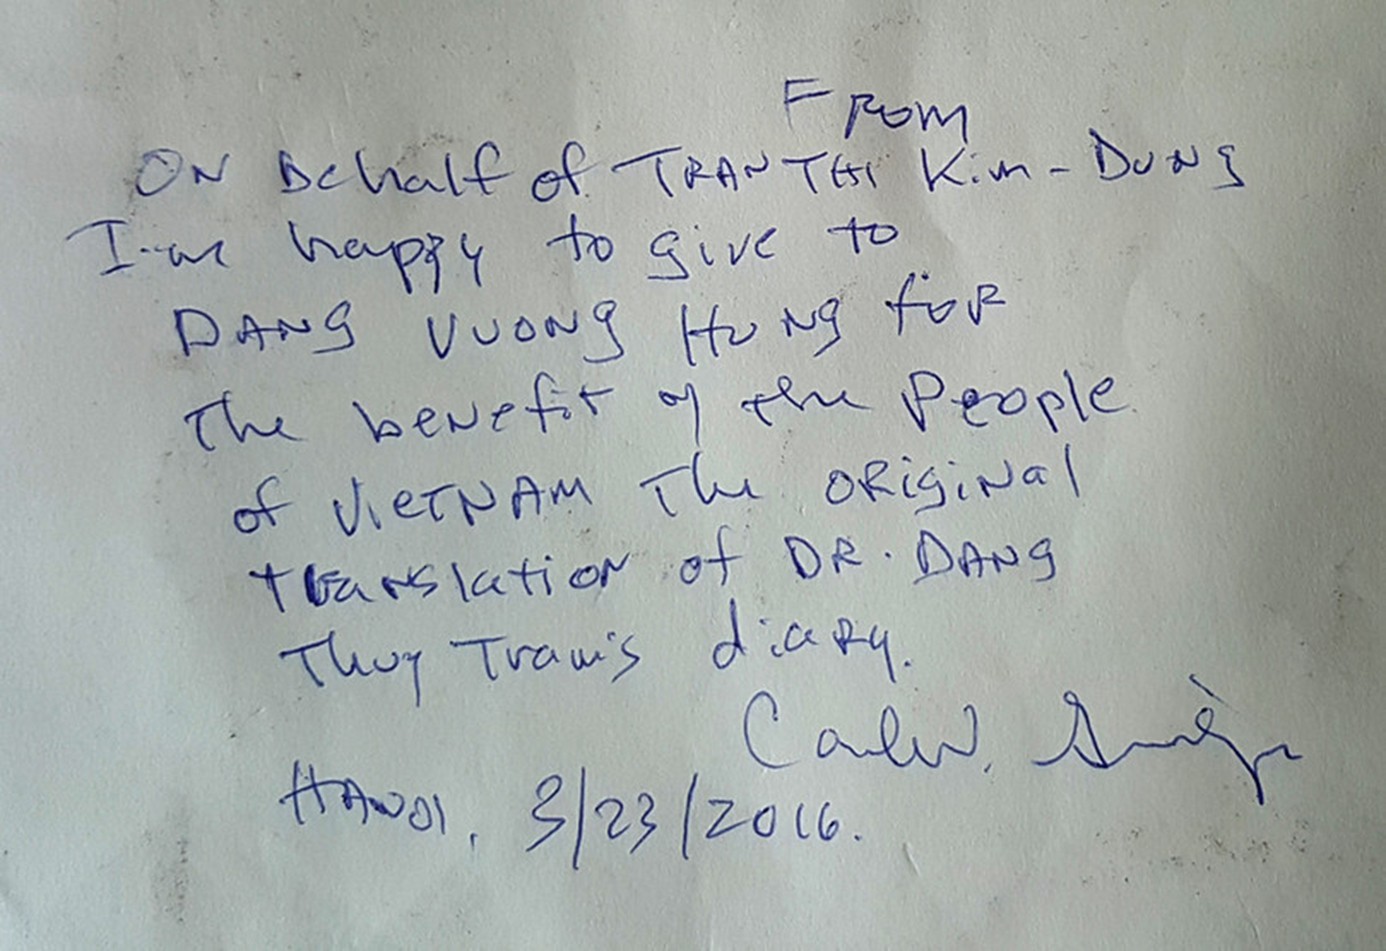 FROM
ON behalf of TRAN THI Kim-DUNG
I am happy to give to
DANG VUONG HUNG for
The benefit of the People
of VIETNAM The original
translation of DR. DANG
Thuy Tram's diary.
HANOI, 3/23/2016.